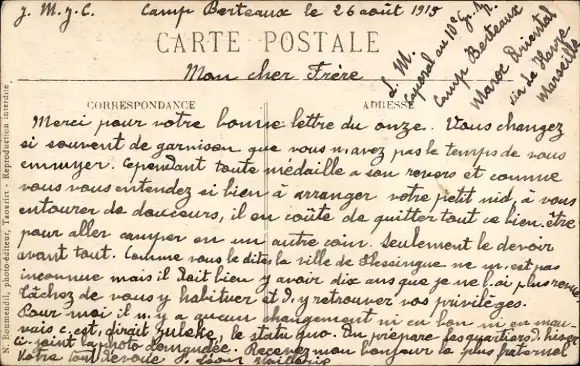 J. M. J. C. Camp Berteaux le 26 août 1915
CARTE POSTALE
Mon cher Frère
CORRESPONDANCE
ADRESSE
L. M.
Caporal au 10e
Camp Berteaux
Maroc Oriental
via de
Marseille
Merci pour votre bonne lettre du onze. Vous changez
si souvent de garnison que vous n'avez pas le temps de vous
ennuyer. Cependant toute médaille a son revers et comme
vous vous entendez si bien à arranger votre petit nid, à vous
entourer de douceurs, il en coûte de quitter tout ce bien.être
pour aller camper en un autre coin. Seulement le devoir
avant tout. Comme vous le dites la ville de Flessingue ne m.est pas
inconnue mais il doit bien y avoir dix ans que je ne l.ai plus revue
Tâchez de vous y habituer et d.y retrouver vos privilèges.
Pour moi il n.y a aucun changement ni en bon ni en mau-
vais c.est, dirait le statu quo. On prépare les quartiers d.hiver
ci-joint la photo demandée. Recevez mon bonjour le plus fraternel
Votre tout dévoué Léon
N. Boumendil, photo-éditeur, Taourirt - Reproduction interdite